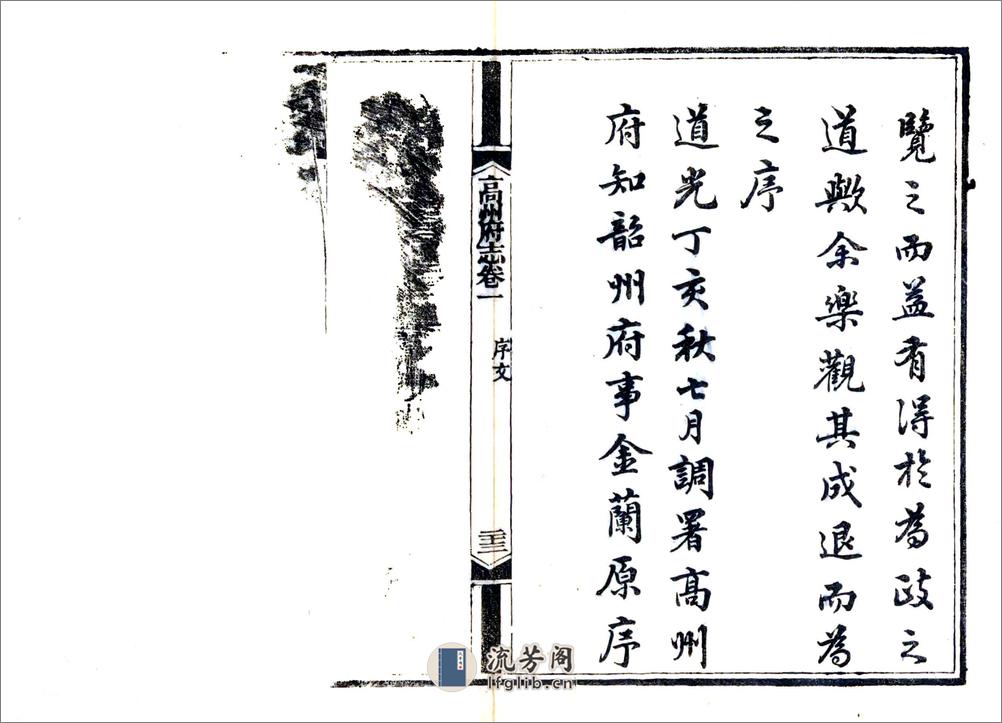 覽之而益有得於為政之
道歟余樂觀其成退而為
之序
道光丁亥秋七月調署高州
府知韶州府事金蘭原序
高州府志卷一
序文
二十三
流芳阁
lfglib.cn